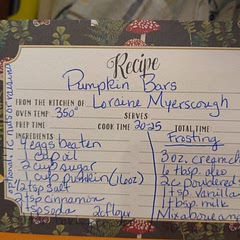 Recipe
Pumpkin Bars
FROM THE KITCHEN OF Lorraine Myerscough
OVEN TEMP 350° SERVES
PREP TIME COOK TIME 20-25 TOTAL TIME
INGREDIENTS
4 eggs beaten
1 cup oil
2 cup sugar
1 cup pumpkin (16oz)
1/2 tsp salt
2 tsp cinnamon
1 tsp soda 2c flour
Frosting
3 oz. cream ch
6 tbsp oleo
2c powdered
1 tsp vanilla
1 tbsp milk
Mix above an
optional: 1c nuts or raisins